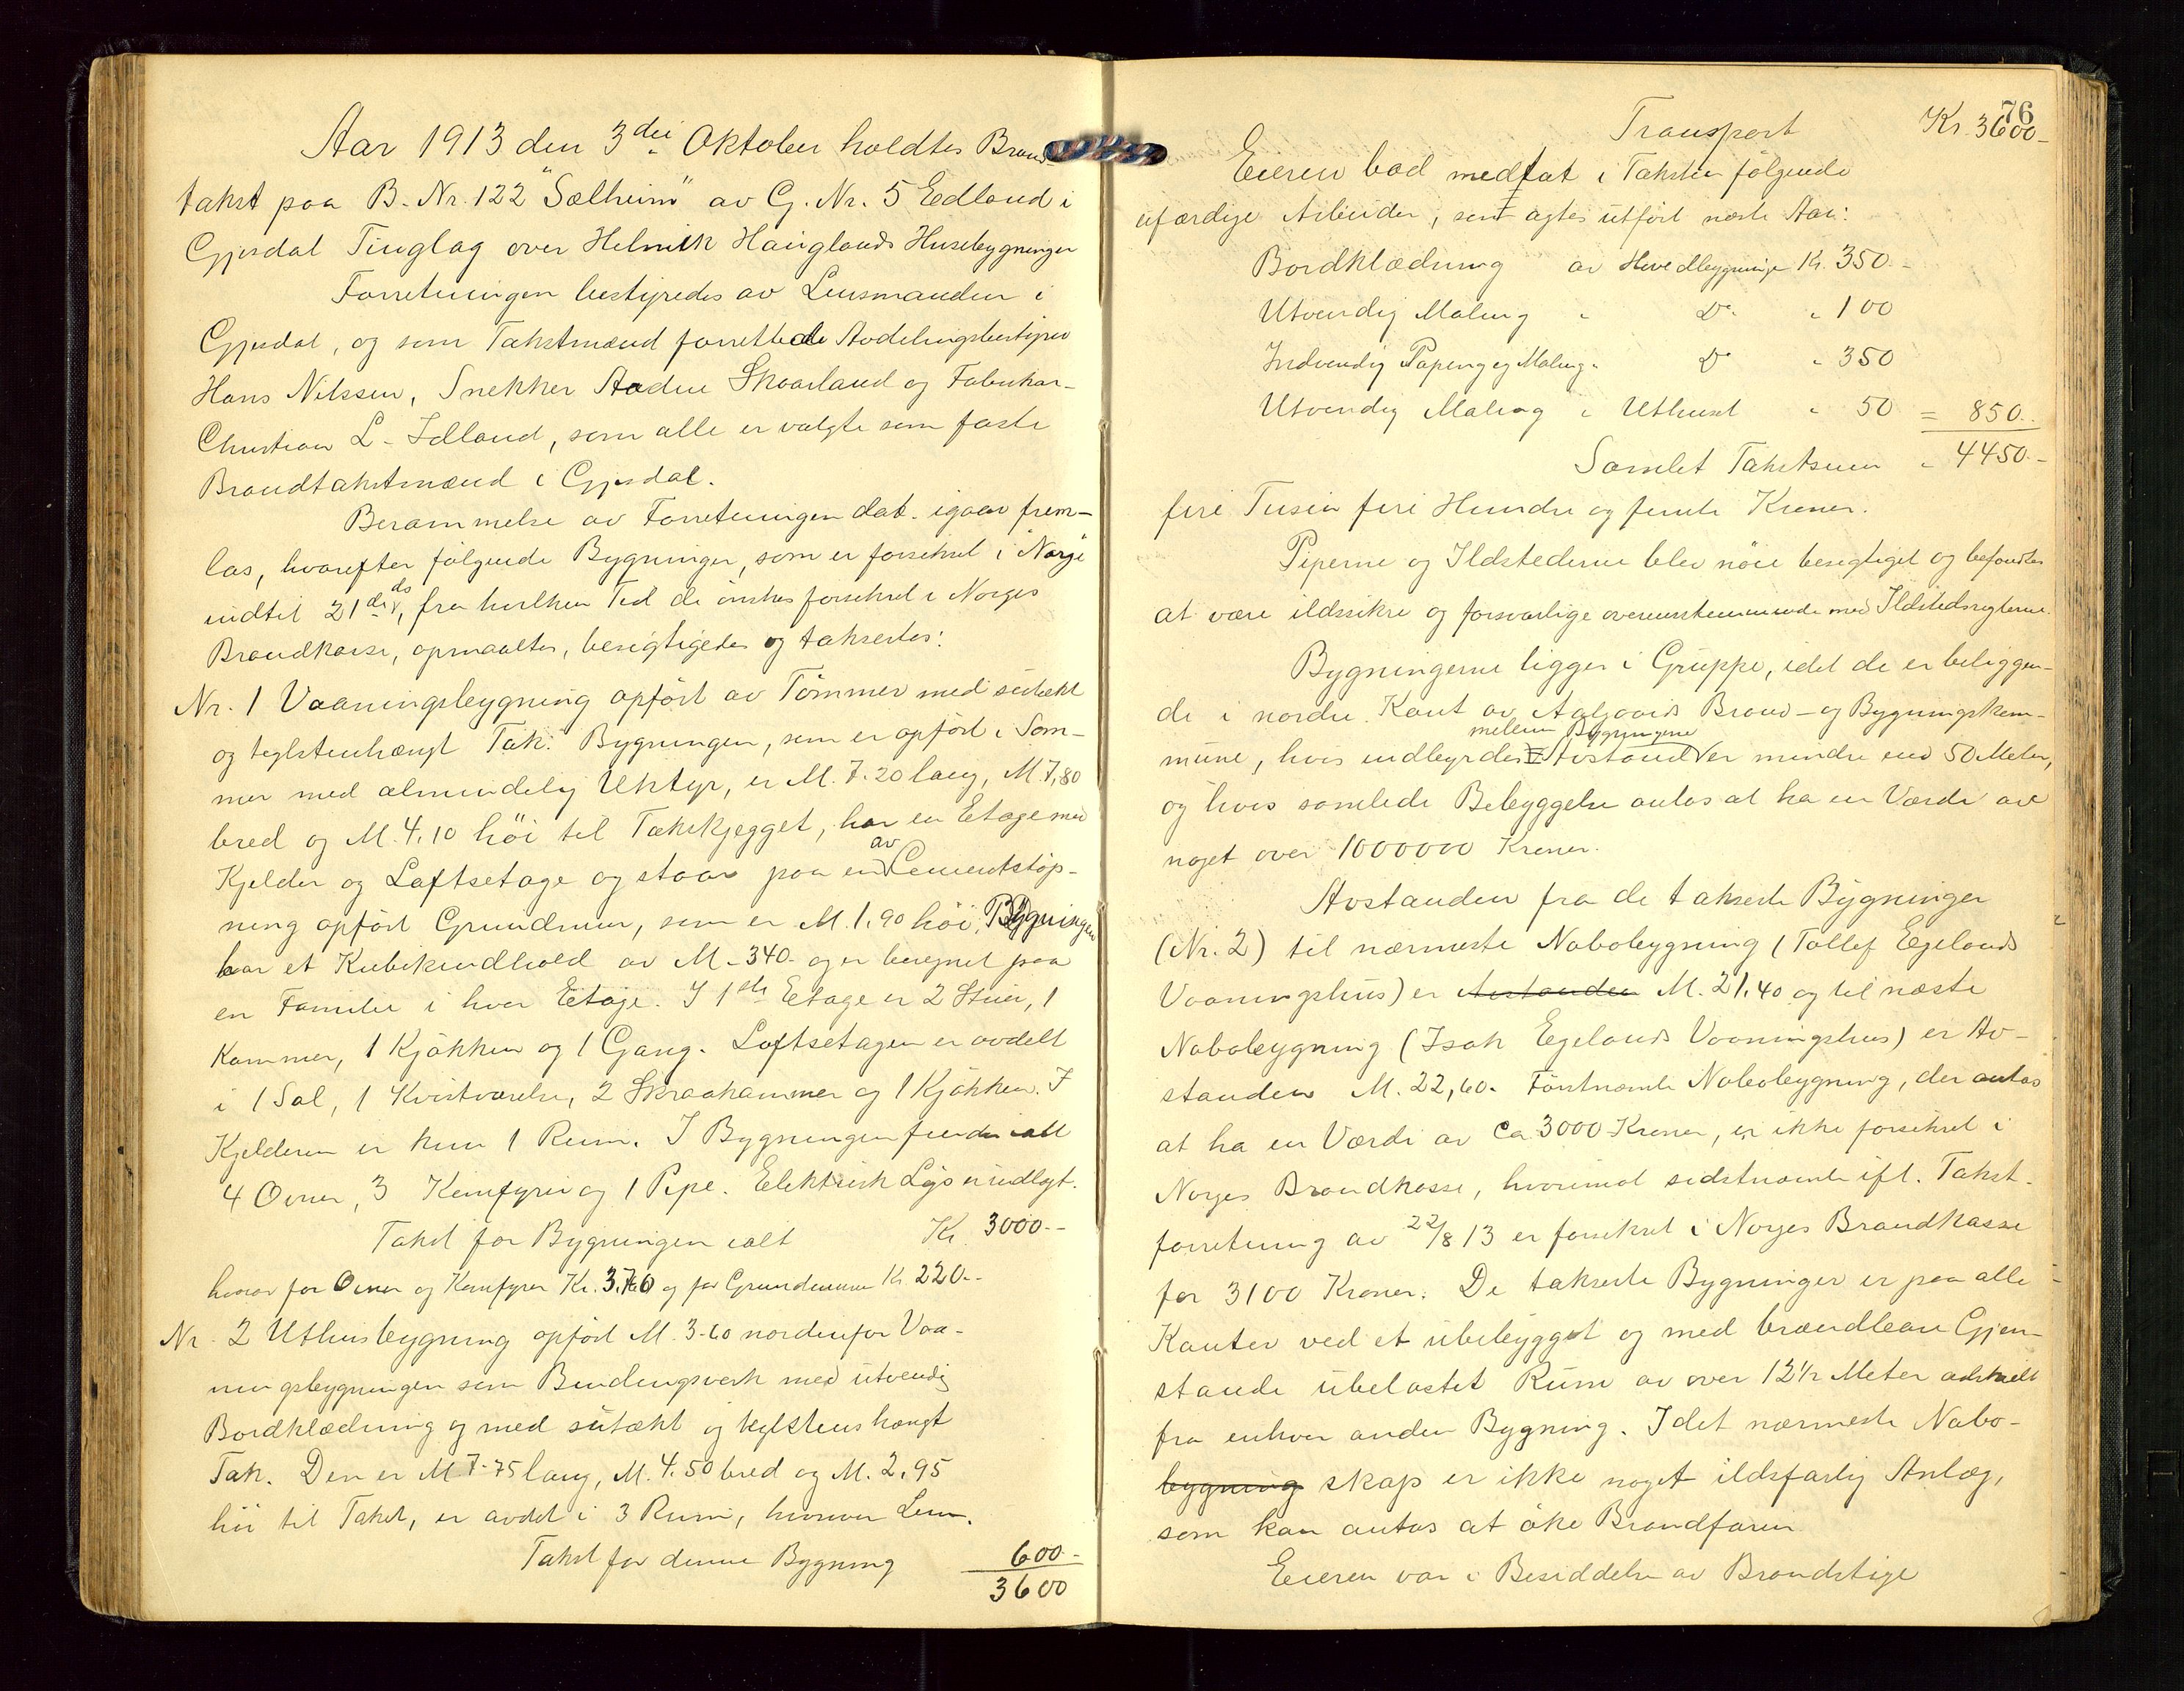 Aar 1913 den 3die Oktober holdtes Brand-
takst paa B. Nr. 122 "Sælheim" av G. Nr. 5 Edland i
Gjesdal Tinglag over Helmik Hauglands Husebygninger
Forretningen bestyredes av Lensmanden i
Gjesdal, og som Takstmænd forrettede Avdelingsbestyrer
Hans Nilssen, Snekker Aadne Skaarland og Fabrikar-
Christian L. Idland, som alle er valgte som faste
Brandtakstmænd i Gjesdal.
Berammelse av Forretningen dat. igaar frem-
las, hvorefter følgende Bygninger, som er forsikret i "Norge"
indtil 21de ds, fra hvilken Tid de ønskes forsikret i Norges
Brandkasse, opmaaltes, besigtigedes og takseredes:
Nr. 1 Vaaningsbygning opført av Tømmer med sutækt
og teglstenhængt Tak. Bygningen, som er opført i Som-
mer med almindelig Utstyr, er M. 7.20 lang, M. 7,80
bred og M. 4,10 høi til Takskjegget, har en Etage med
Kjelder og Loftsetage og staar paa en av Cementstøp-
ning opført Grundmur, som er M. 1,90 høi. Bygningen
har et Kubikindhold av M. 340. og er beregnet paa
en Familie i hver Etage. I 1ste Etage er 2 Stuer, 1
Kammer, 1 Kjøkken og 1 Gang. Loftsetagen er avdelt
i 1 Sal, 1 Kvistværelse, 2 Skraakammer og 1 Kjøkken. I
Kjelderen er kun 1 Rum. I Bygningen findes ialt
4 Ovner, 3 Komfyrer og 1 Pipe. Elektrisk Lys er indlagt.
Takst for Bygningen ialt Kr. 3000.-
hvorav for Ovner og Komfyrer Kr. 370 og for Grundmuren Kr. 220.-
Nr. 2 Uthusbygning opført M. 3.60 nordenfor Vaa-
ningsbygningen som Bindingsverk med utvendig
Bordklædning og med sutækt og teglstenshængt
Tak. Den er M 7.75 lang, M. 4.50 bred og M. 2,95
høi til Taket, er avdelt i 3 Rum, hvorav
Takst for denne Bygning 600.-
3600
76
Transport Kr. 3600-
Eieren bad medtat i Taksten følgende
ufærdige Arbeider, som agtes utført næste Aar:
Bordklædning av Hovedbygningen Kr. 350.-
Utvendig Maling " Do " 100
Indvendig Papering og Maling " Do " 350
Utvendig Maling " Uthuset " 50 = 850.
Samlet Takstsum " 4450.-
fire Tusin fire Hundre og femti Kroner.
Piperne og Ildstederne blev nøie besigtiget og befandtes
at være ildssikre og forsvarlige overensstemmende med Ildstedsreglerne.
Bygningerne ligger i Gruppe, idet de er beliggen-
de i nordre Kant av Aalgaards Brand- og Bygningskom-
mune, hvis indbyrdes Avstand mellem Bygningerne er mindre end 50 Meter,
og hvis samlede Bebyggelse antas at ha en Værdi av
noget over 1000000 Kroner.
Avstanden fra de takserte Bygninger
(Nr. 2) til nærmeste Nabobygning (Tollef Egelands
Vaaningshus) er Avstanden M. 21,40 og til næste
Nabobygning (Isak Egelands Vaaningshus) er Av-
standen M. 22,60. Førstnævnte Nabobygning, der antas
at ha en Værdi av ca 3000 Kroner, er ikke forsikret i
Norges Brandkasse, hvorimot sidstnævnte ifl. Takst-
forretning av 22/8 13 er forsikret i Norges Brandkasse
for 3100 Kroner. De takserte Bygninger er paa alle
Kanter ved et ubebygget og med brændbare Gjen-
stande ubelastet Rum av over 12½ Meter adskilt
fra enhver anden Bygning. I det nærmeste Nabo-
bygning skap er ikke noget ildsfarlig Anlæg,
som kan antas at øke Brandfaren
Eieren var i Besiddelse av Brandstige